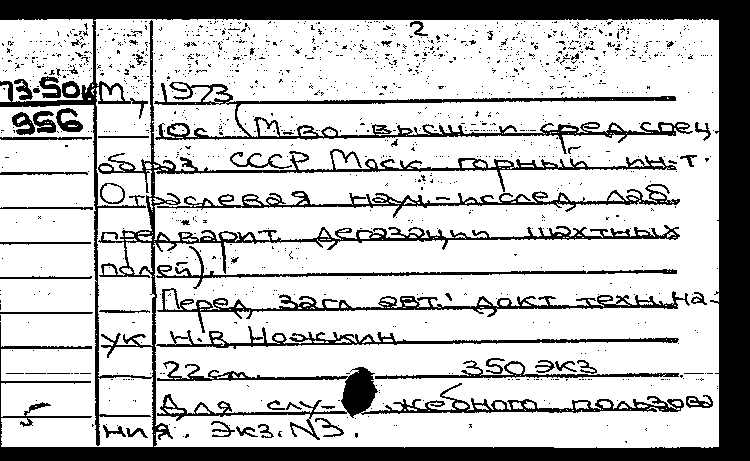 2
73-50к М., 1973
956 10с. (М-во высш. и сред. спец.
образ. СССР Моск. горный ин-т.
Отраслевая науч.-исслед. лаб.
предварит. дегазации шахтных
полей).
Перед загл. авт.: докт. техн. на-
ук Н.В. Ножкин.
22см. 350 экз
Для слу-жебного пользова
ния. Экз. N3.